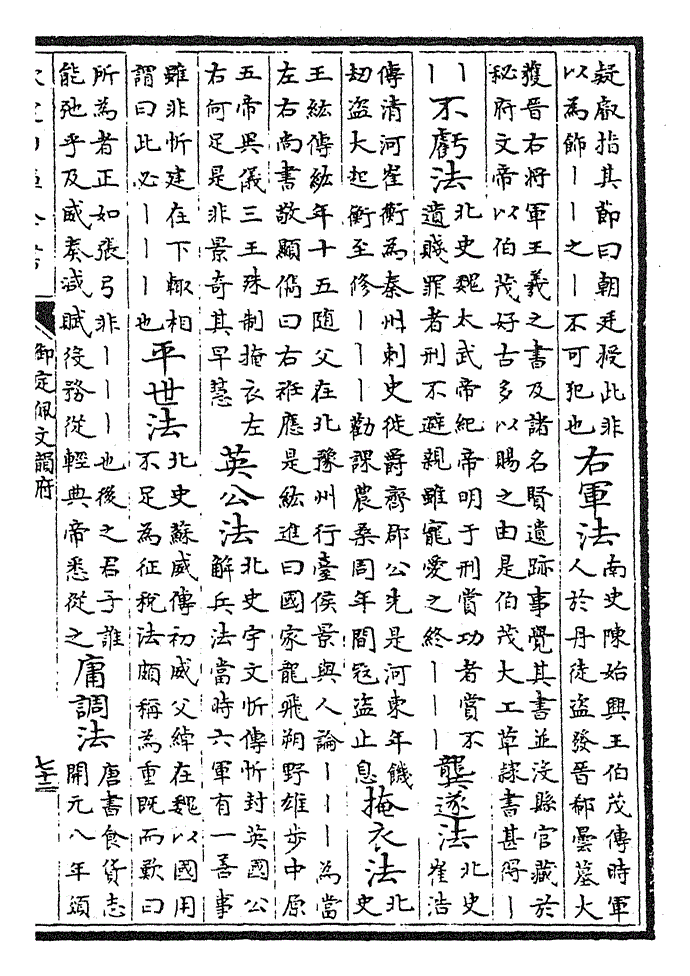 疑叡指其節曰朝廷授此非
以為飾丨丨之丨不可犯也
右軍法
南史陳始興王伯茂傳時軍
人於丹徒盜發晉郗曇墓大
獲晉右將軍王羲之書及諸名賢遺跡事覺其書並沒縣官藏於
秘府文帝以伯茂好古多以賜之由是伯茂大工草隸書甚得丨
丨
丨
不虧法
北史魏太武帝紀帝明于刑賞功者賞不
遺賤罪者刑不避親雖寵愛之終丨丨丨
龔遂法
北史
崔浩
傳清河崔衡為秦州刺史徙爵齊郡公先是河東年饑
劫盜大起衡至修丨丨丨勸課農桑周年間寇盜止息
掩衣法
北
史
王紘傳紘年十五隨父在北豫州行臺侯景與人論丨丨丨為當
左右尚書敬顯儁曰右袵應是紘進曰國家龍飛朔野雄步中原
五帝異儀三王殊制掩衣左
右何足是非景奇其早慧
英公法
北史宇文忻傳忻封英國公
解兵法當時六軍有一善事
雖非忻建在下輙相
謂曰此必丨丨丨也
平世法
北史蘇威傳初威父綽在魏以國用
不足為征稅法頗稱為重既而歎曰
所為者正如張弓非丨丨丨也後之君子誰
能弛乎及威奏減賦役務從輕典帝悉從之
庸調法
唐書食貨志
開元八年頒
欽定四庫全書
御定佩文韻府